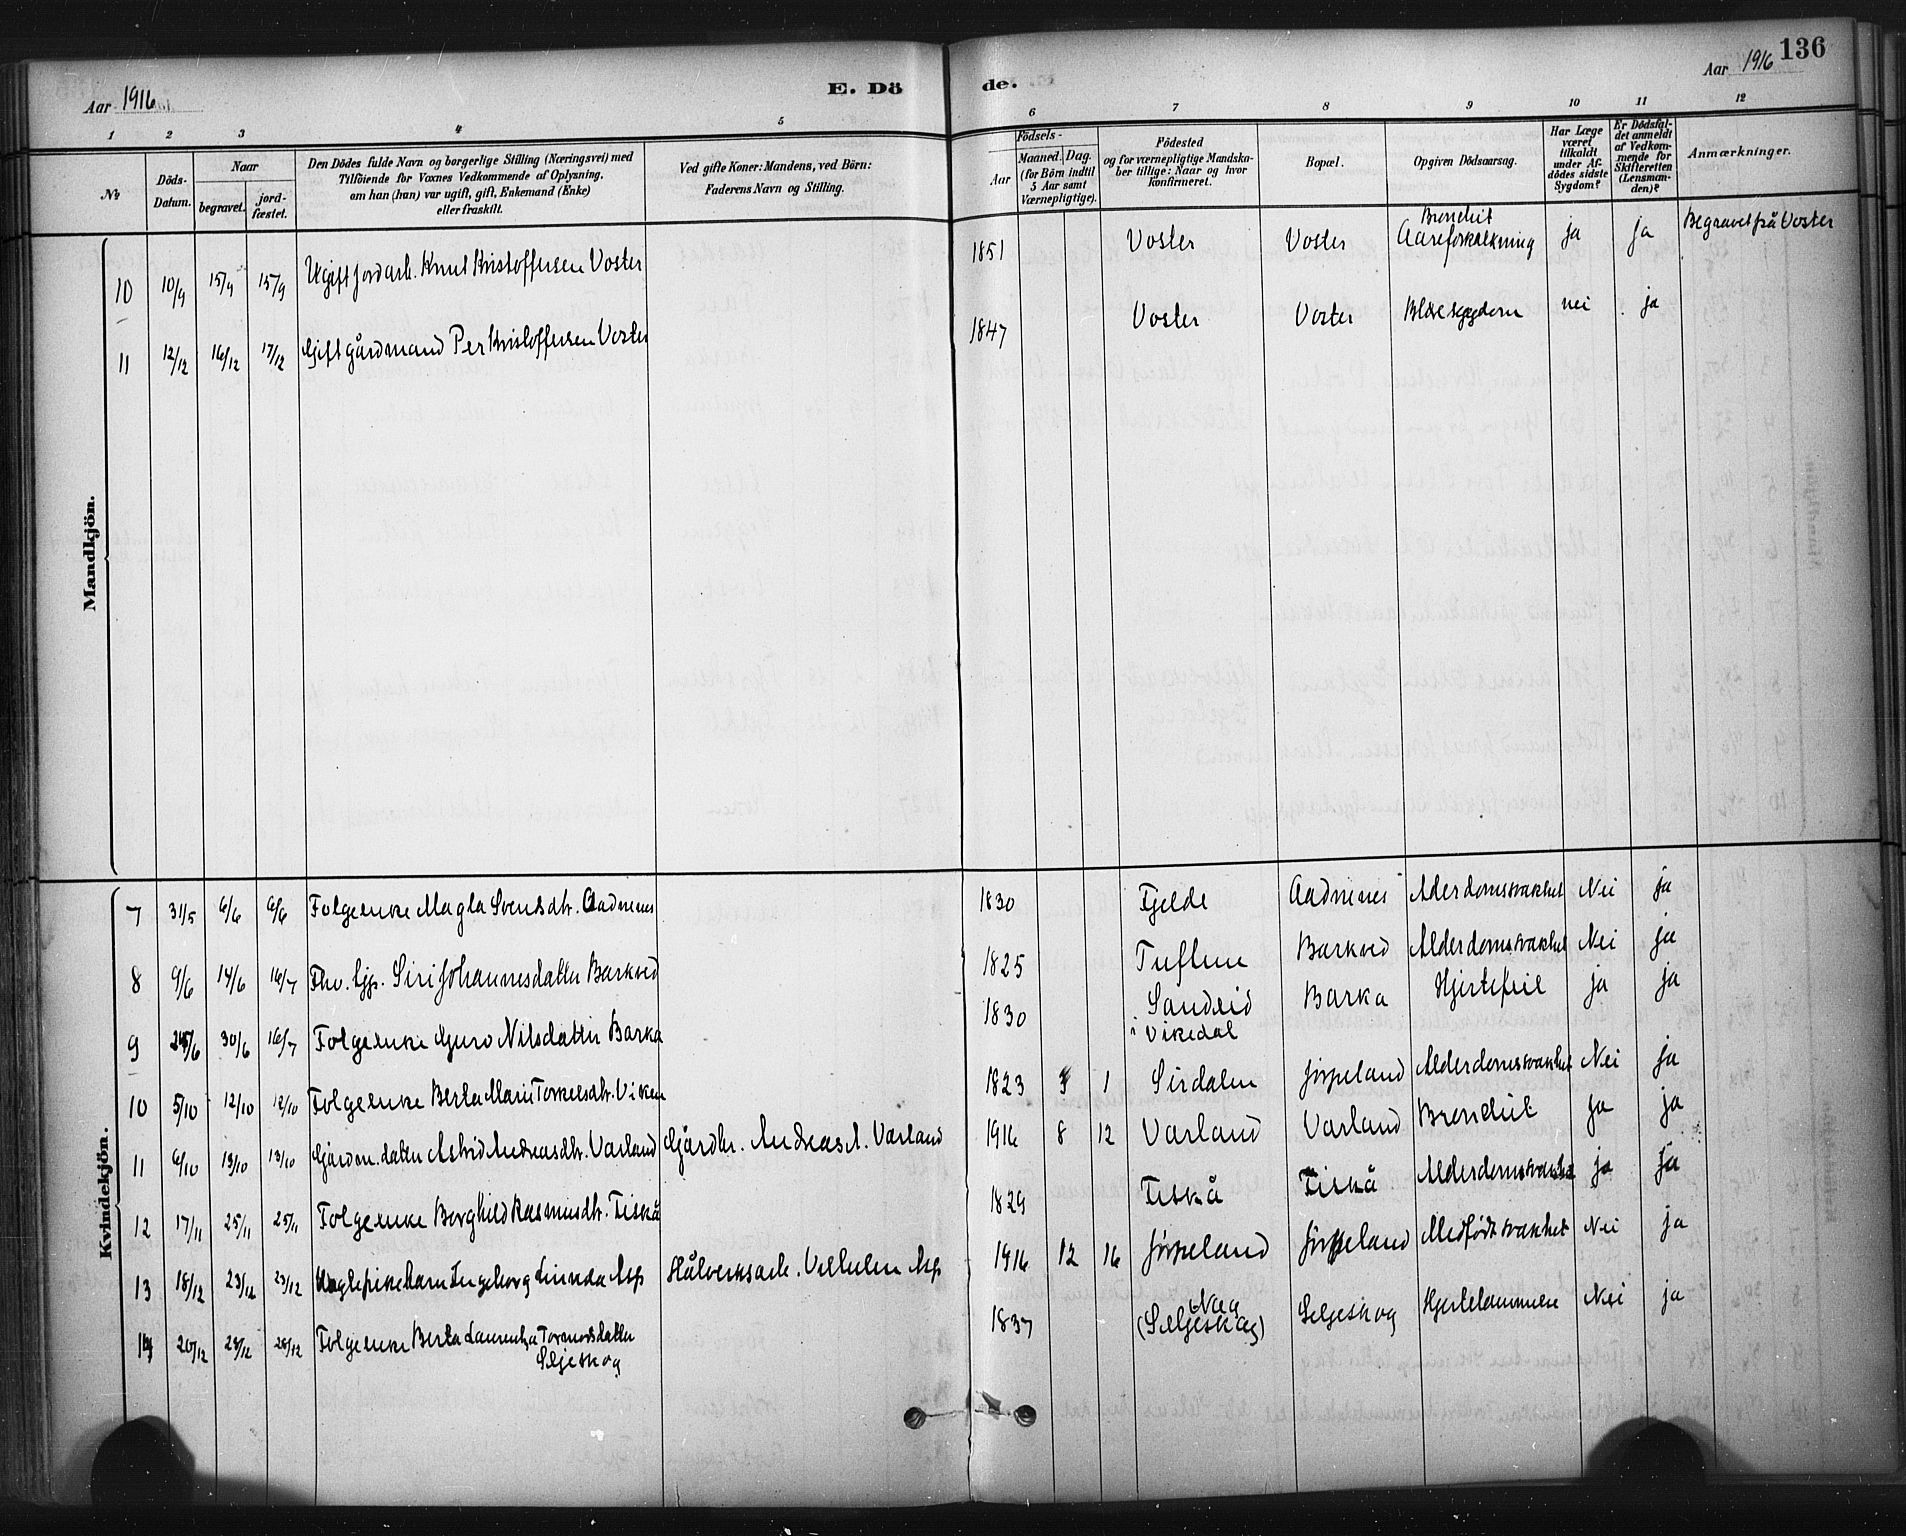 Aar 1916
E. Dö
de.
Aar 1916
136
1 2 3 4 5 6 7 8 9 10 11 12
№
Döds-Datum.
Naar
begravet.
jord-fæstet.
Den Dödes fulde Navn og borgerlige Stilling (Næringsvei) med
Tilföiende for Voxnes Vedkommende af Oplysning,
om han (hun) var ugift, gift, Enkemand (Enke)
eller fraskilt.
Ved gifte Koner: Mandens, ved Börn:
Faderens Navn og Stilling.
Födsels-
Aar
Maaned. Dag.
(for Börn indtil
5 Aar samt
Værnepligtige).
Födested
og for værnepligtige Mandska-
ber tillige: Naar og hvor
konfirmeret.
Bopæl.
Opgiven Dödsaarsag.
Har Læge
været
tilkaldt
under Af-
dödes sidste
Sygdom?
Er Dödsfal-
det anmeldt
af Vedkom-
mende for
Skifteretten
(Lensman-
den)?
Anmærkninger.
Mandkjön.
10 10/9 15/9 15/9 Ugift jordarb. Knut Kristoffersen Voster 1851 Voster Voster Bronchit Aareforkalkning ja ja Begravet på Voster
11 12/12 16/12 17/12 Gift gårdmand Per Kristoffersen Voster 1847 Voster Voster nei ja
Kvindekjön.
7 31/5 6/6 6/6 Folgeenke Magla Svensdtr. Aadnenes 1830 Fjelde Aadnenes Alderdomssvakhet Nei ja
8 9/6 14/6 16/7 Siri Johannesdatter Barkved 1825 Barkved Alderdomssvakhet Nei ja
9 30/6 16/7 Folgeenke Guro Nilsdatter Barka 1830 Sandeid
i Vikedal Barka Hjertefeil ja ja
10 5/10 12/10 12/10 Folgeenke Berta Marie Torkelsdtr. Viken 1823 1 Sirdalen Jörpeland Alderdomssvakhet Nei ja
11 6/10 13/10 13/10 Gårdm. datter Astrid Andreasdtr. Varland Gårdbr. Andreas A. Varland 1916 8 12 Varland Varland Bronchit ja ja
12 17/11 25/11 25/11 Folgeenke Borghild Rasmusdtr. Fiskå 1829 Fiskå Fiskå Alderdomssvakhet ja ja
13 18/12 23/12 23/12 Uegte pikebarn Ingeborg Linnda Asp Stålverksarb. Vilhelm Asp 1916 12 16 Jörpeland Jörpeland Medfödt svakhet Nei ja
14 20/12 28/12 28/12 Folgeenke Berta Laurentza Tormodsdatter
Seljeskog 1837 Nag
(Seljeskog) Seljeskog Hjertelammelse Nei ja